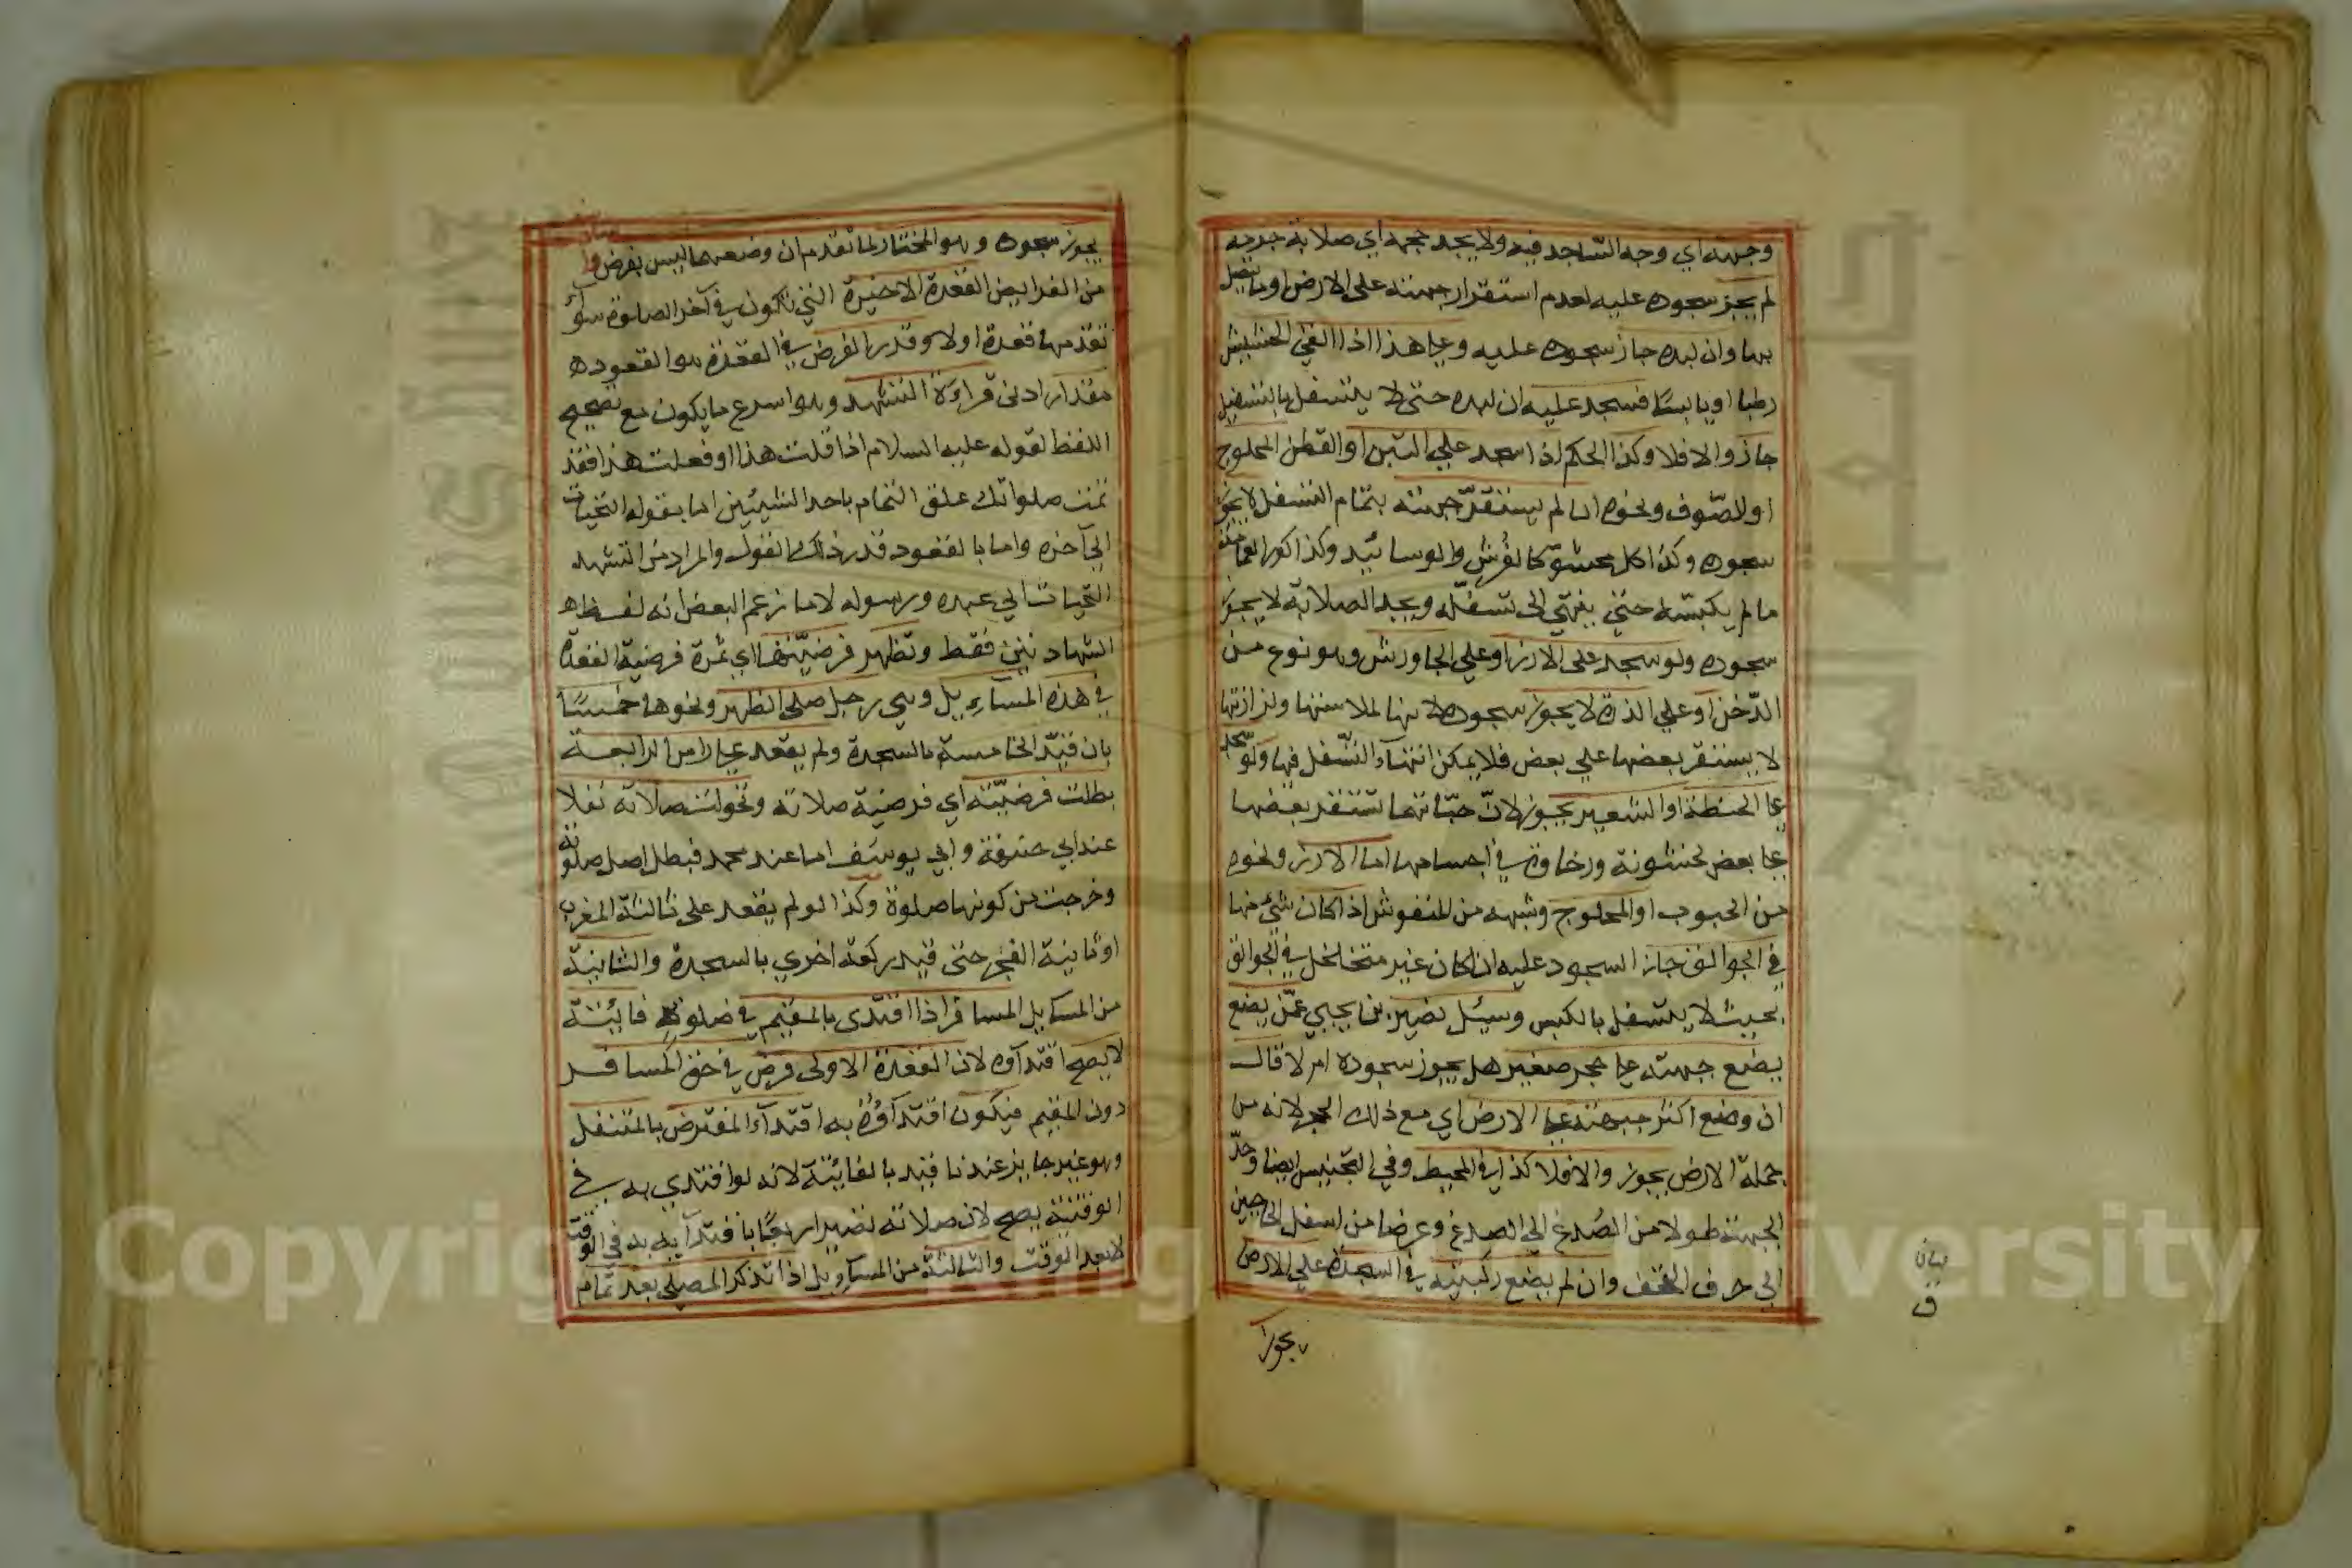 وجهه اي وجه الساجد فيه ولا يجد حجمه اي صلابة جرمه
لم يجز سجوده عليه لعدم استقرار جبهته على الارض او ما يتصل
بها وان لبده جاز سجوده عليه وعلى هذا اذا القي الحشيش
رطبا او يابسا فسجد عليه ان لبده حتى لا يتسفل بالتسفيل
جاز والا فلا وكذا الحكم اذا سجد علي التبن او القطن المحلوج
او الصوف ونحوه ان لم يستقر جبهته بتمام التسفل لا يجوز
سجوده وكذا كل محشو كالفرش والوسائد وكذا كور العمامة
ما لم يكبسه حتى ينتهي الى تسفله ويجد الصلابة لا يجوز
سجوده ولو سجد على الارز او علي الجاورش وهو نوع من
الدخن او علي الذرة لا يجوز سجوده لانها لملاستها ولزازتها
لا يستقر بعضها علي بعض فلا يمكن انتهاء التسفل فيها ولو سجد
على الحنطة او الشعير يجوز لان حباتها تستقر بعضها
على بعض لخشونة ورخاوة في اجسامها اما الارز ونحوه
من الحبوب او المحلوج وشبهه من المنفوش اذا كان شئ منها
في الجوالق جاز السجود عليه ان كان غير متخلخل في الجوالق
بحيث لا يتسفل بالكبس وسئل نصير بن يحيي عمن يضع
يضع جبهته على حجر صغير هل يجوز سجوده ام لا قال
ان وضع اكثر جبهته على الارض اي مع ذلك الحجر لانه من
جملة الارض يجوز والا فلا كذا في المحيط وفي التجنيس ايضا وحد
الجبهة طولا من الصدغ الي الصدغ وعرضا من اسفل الحاجبين
الي حرف القحف وان لم يضع ركبتيه في السجدة علي الارض
يجوز
بيان
ق
يجوز سجوده وهو المختار لما تقدم ان وضعهما ليس بفرض
من الفرايض القعدة الاخيرة التي تكون في آخر الصلوة سواء
تقدمها قعدة اولا وقدر الفرض في القعدة هو القعوده
مقدار ادنى قراءة التشهد وهو اسرع ما يكون مع تصحيح
اللفظ لقوله عليه السلام اذا قلت هذا او فعلت هذا فقد
تمت صلواتك علق التمام باحد الشيئين اما بقوله التحيات
الي آخره واما بالقعود قدر ذلك القول والمراد من التشهد
التحيات الي عبده ورسوله لا ما زعم البعض انه لفظه
الشهادتين فقط وتظهر فرضيتها اي ثمرة فرضية القعدة
في هذه المسايل وهي رجل صلى الظهر ونحوها خمسا
بان قيد الخامسة بالسجدة ولم يقعد على راس الرابعة
بطلت فرضيته اي فرضية صلاته وتحولت صلاته نفلا
عند ابي حنيفة وابي يوسف اما عند محمد فبطل اصل صلوته
وخرجت من كونها صلوة وكذا لو لم يقعد على ثالثة المغرب
او ثانية الفجر حتى قيد ركعة اخري بالسجدة والثانية
من المسايل المسافر اذا اقتدى بالمقيم في صلوة فائتة
لا يصح اقتداوه لان القعدة الاولى فرض في حق المسافر
دون المقيم فيكون اقتداؤه به اقتداء المفترض بالمتنفل
وهو غير جايز عندنا قيد بالفائتة لانه لو اقتدي به في
الوقتية يصح لان صلاته تصير اربعا باقتدايه به في الوقت
لا بعد الوقت والثالثة من المسايل اذا تذكر المصلي بعد تمام